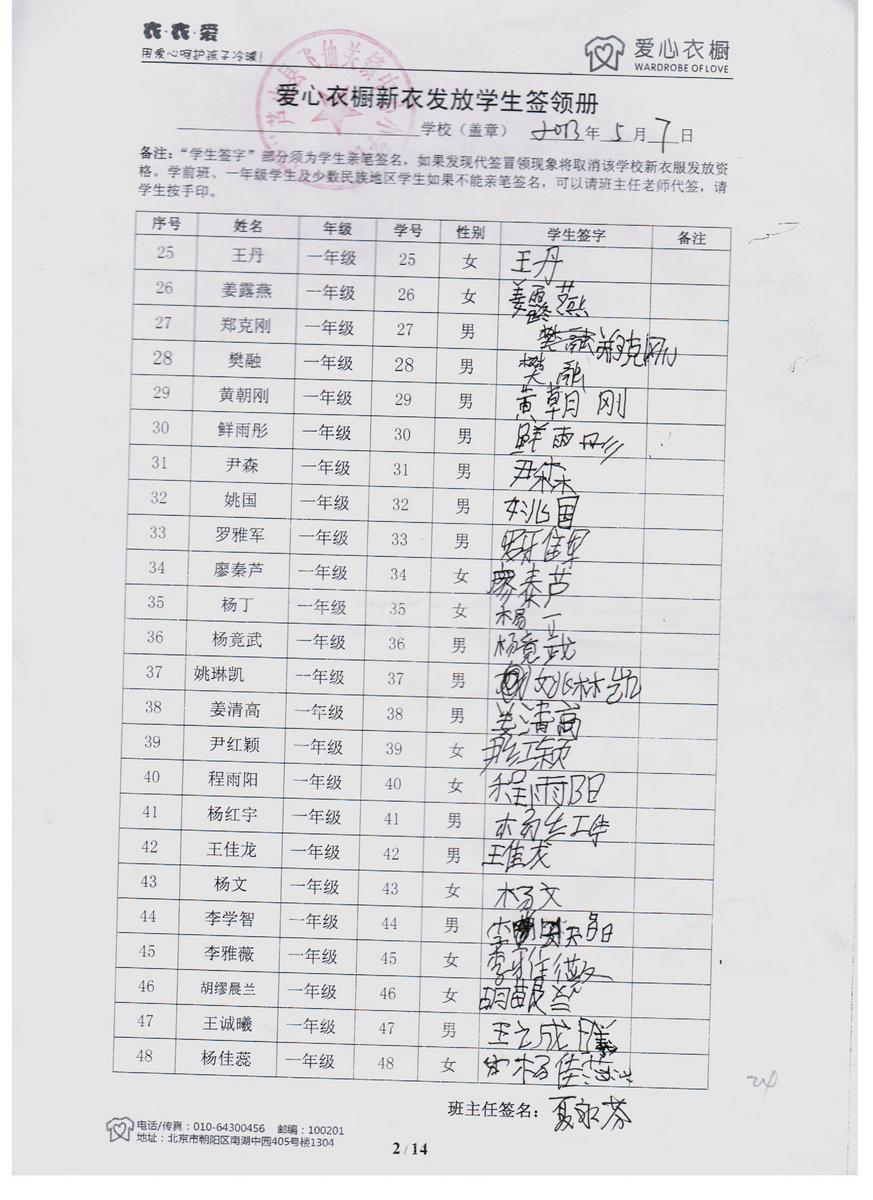 衣·衣·爱
用爱心呵护孩子冷暖!
爱心衣橱
WARDROBE OF LOVE
爱心衣橱新衣发放学生签领册
学校（盖章） 2013年 5月 7日
备注：“学生签字”部分须为学生亲笔签名，如果发现代签冒领现象将取消该学校新衣服发放资
格。学前班、一年级学生及少数民族地区学生如果不能亲笔签名，可以请班主任老师代签，请
学生按手印。
序号 姓名 年级 学号 性别 学生签字 备注
25 王丹 一年级 25 女 王丹
26 姜露燕 一年级 26 女 姜露燕
27 郑克刚 一年级 27 男 樊融 郑克刚
28 樊融 一年级 28 男 樊融
29 黄朝刚 一年级 29 男 黄朝刚
30 鲜雨彤 一年级 30 男 鲜雨彤
31 尹森 一年级 31 男 尹森
32 姚国 一年级 32 男 姚国
33 罗雅军 一年级 33 男 罗雅军
34 廖秦芦 一年级 34 女 廖秦芦
35 杨丁 一年级 35 女 杨丁
36 杨竟武 一年级 36 男 杨竟武
37 姚琳凯 一年级 37 男 姚林凯
38 姜清高 一年级 38 男 姜清高
39 尹红颖 一年级 39 女 尹红颖
40 程雨阳 一年级 40 女 程雨阳
41 杨红宇 一年级 41 男 杨红宇
42 王佳龙 一年级 42 男 王佳龙
43 杨文 一年级 43 女 杨文
44 李学智 一年级 44 男 李
45 李雅薇 一年级 45 女 李雅薇
46 胡缪晨兰 一年级 46 女 胡
47 王诚曦 一年级 47 男 王诚曦
48 杨佳蕊 一年级 48 女 杨佳蕊
班主任签名：
电话/传真：010-64300456 邮编：100201
地址：北京市朝阳区南湖中园405号楼1304
2 / 14